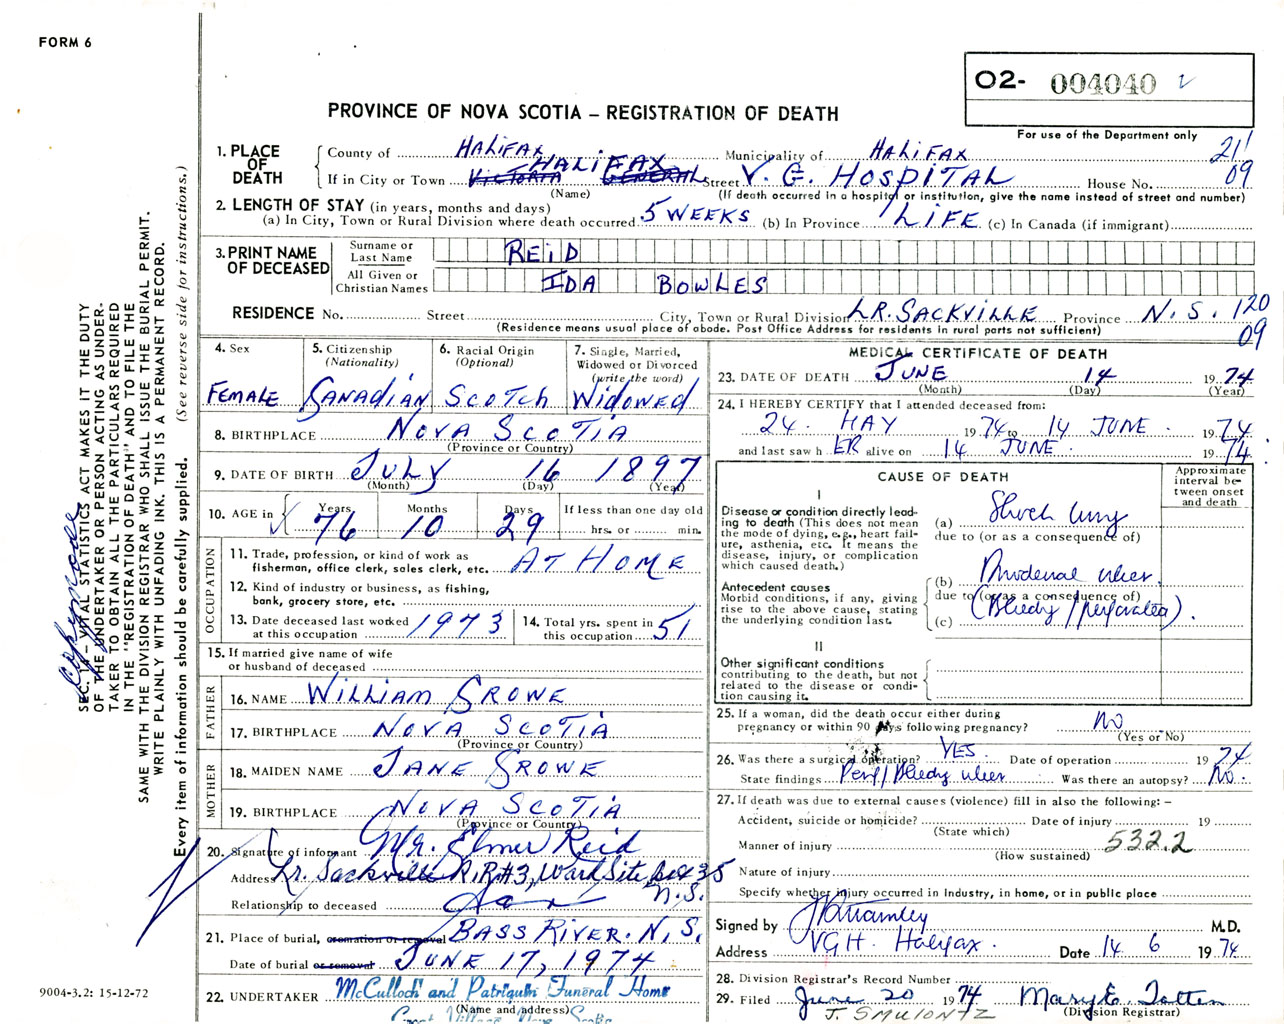 FORM 6
O2- 004040
PROVINCE OF NOVA SCOTIA – REGISTRATION OF DEATH
For use of the Department only
1. PLACE OF DEATH
County of HALIFAX Municipality of HALIFAX 21
If in City or Town VICTORIA GENERAL HALIFAX Street V. G. HOSPITAL House No. 09
(Name) (If death occurred in a hospital or institution, give the name instead of street and number)
2. LENGTH OF STAY (in years, months and days)
(a) In City, Town or Rural Division where death occurred 5 WEEKS (b) In Province LIFE (c) In Canada (if immigrant)
3. PRINT NAME OF DECEASED
Surname or Last Name REID
All Given or Christian Names IDA BOWLES
RESIDENCE No. Street City, Town or Rural Division LR. SACKVILLE Province N.S. 120
(Residence means usual place of abode. Post Office Address for residents in rural parts not sufficient) 09
4. Sex FEMALE
5. Citizenship (Nationality) CANADIAN
6. Racial Origin (Optional) SCOTCH
7. Single, Married, Widowed or Divorced (write the word) WIDOWED
8. BIRTHPLACE NOVA SCOTIA
(Province or Country)
9. DATE OF BIRTH JULY 16 1897
(Month) (Day) (Year)
10. AGE in Years Months Days If less than one day old
76 10 29 hrs. or min.
OCCUPATION
11. Trade, profession, or kind of work as fisherman, office clerk, sales clerk, etc. AT HOME
12. Kind of industry or business, as fishing, bank, grocery store, etc.
13. Date deceased last worked at this occupation 1973
14. Total yrs. spent in this occupation 51
15. If married give name of wife or husband of deceased
FATHER
16. NAME WILLIAM CROWE
17. BIRTHPLACE NOVA SCOTIA
(Province or Country)
MOTHER
18. MAIDEN NAME JANE CROWE
19. BIRTHPLACE NOVA SCOTIA
(Province or Country)
20. Signature of informant Mr. Elmer Reid
Address Lr. Sackville R.R#3, Ward Site, Box 35 N.S.
Relationship to deceased
21. Place of burial, cremation or removal BASS RIVER. N.S.
Date of burial or removal JUNE 17, 1974
22. UNDERTAKER McCulloch and Patriquin Funeral Home
(Name and address)
MEDICAL CERTIFICATE OF DEATH
23. DATE OF DEATH JUNE 14 1974
(Month) (Day) (Year)
24. I HEREBY CERTIFY that I attended deceased from:
24. MAY 1974 to 14 JUNE 1974
and last saw h ER alive on 14 JUNE 1974
CAUSE OF DEATH
Approximate interval between onset and death
I
Disease or condition directly leading to death (This does not mean the mode of dying, e.g., heart failure, asthenia, etc. It means the disease, injury, or complication which caused death.)
(a) Shock lung
due to (or as a consequence of)
Antecedent causes
Morbid conditions, if any, giving rise to the above cause, stating the underlying condition last.
(b) Duodenal ulcer
due to (or as a consequence of)
(c) (Bleedg / perforated).
II
Other significant conditions contributing to the death, but not related to the disease or condition causing it.
25. If a woman, did the death occur either during pregnancy or within 90 days following pregnancy? No
(Yes or No)
26. Was there a surgical operation? YES Date of operation 1974
State findings Perf / Bleedg ulcer Was there an autopsy? No.
27. If death was due to external causes (violence) fill in also the following: –
Accident, suicide or homicide? Date of injury 19
(State which)
Manner of injury 532.2
(How sustained)
Nature of injury
Specify whether injury occurred in Industry, in home, or in public place
Signed by M.D.
Address VGH. Halifax. Date 14 6 1974
28. Division Registrar's Record Number
29. Filed June 20 1974 Mary E. Totten
(Division Registrar)
SEC. VITAL STATISTICS ACT MAKES IT THE DUTY
OF THE UNDERTAKER OR PERSON ACTING AS UNDER-
TAKER TO OBTAIN ALL THE PARTICULARS REQUIRED
IN THE "REGISTRATION OF DEATH" AND TO FILE THE
SAME WITH THE DIVISION REGISTRAR WHO SHALL ISSUE THE BURIAL PERMIT.
WRITE PLAINLY WITH UNFADING INK. THIS IS A PERMANENT RECORD.
Every item of information should be carefully supplied. (See reverse side for instructions.)
9004-3.2: 15-12-72